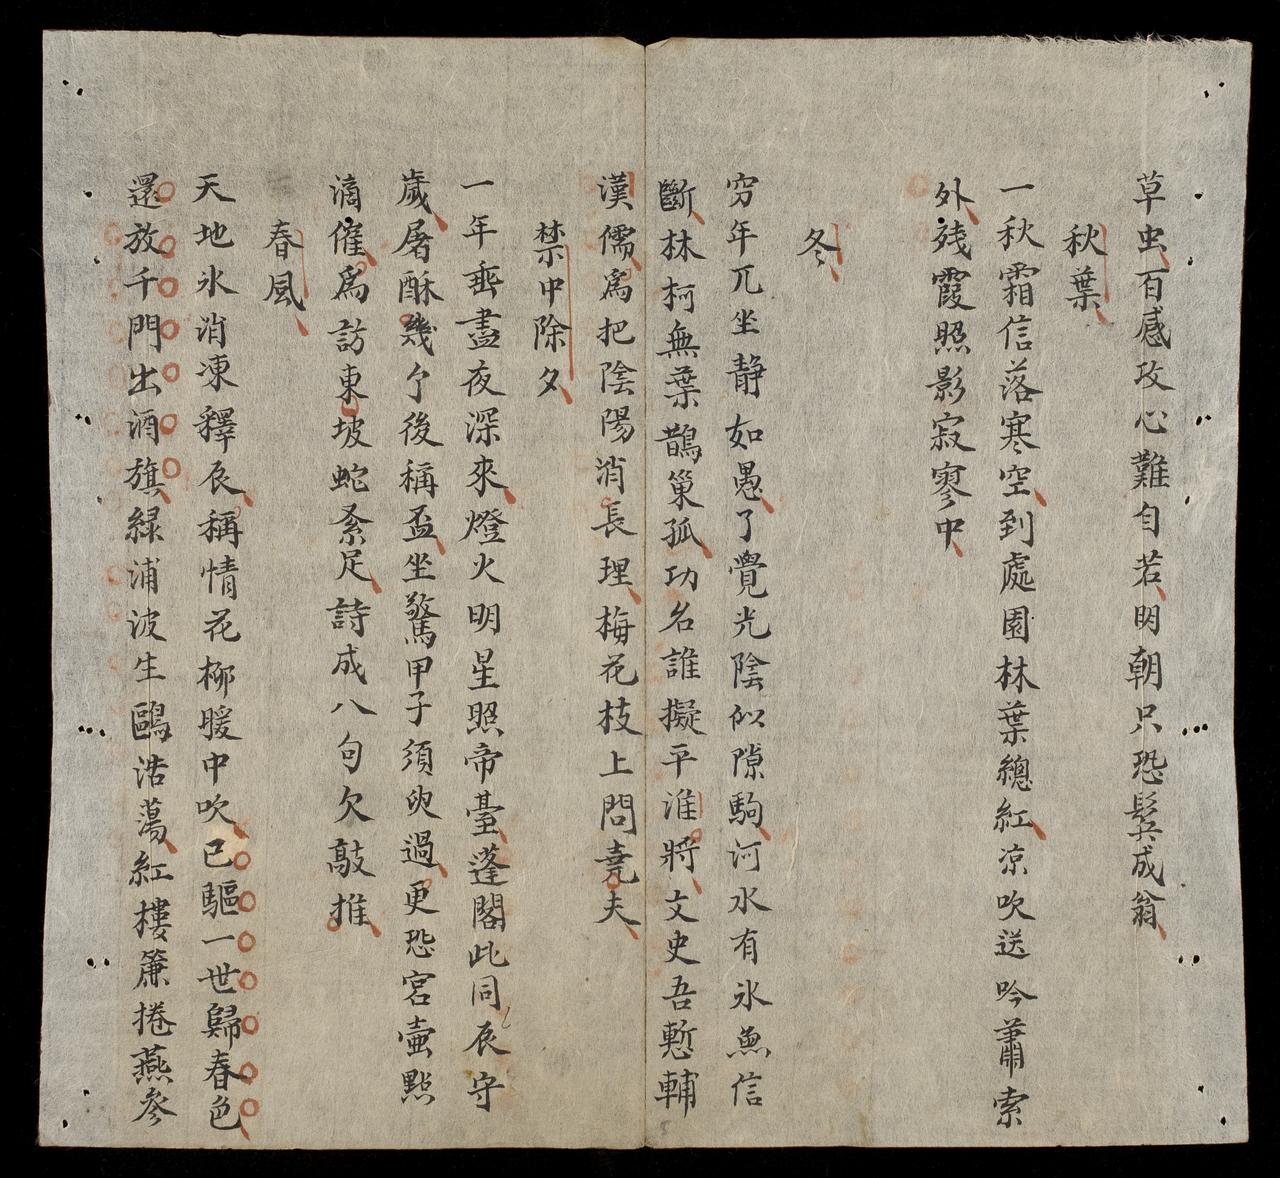 草虫百感攻心難自若明朝只恐鬂成翁
秋葉
一秋霜信落寒空到處園林葉總紅凉吹送吟蕭索
外残霞照影寂寥中
冬
穷年兀坐静如愚了覺光陰似隙駒河水有氷魚信
斷林柯無葉鵲巢孤功名誰擬平淮將文史吾慙輔
漢儒爲把陰陽消長理梅花枝上問堯夫
禁中除夕
一年垂盡夜深來燈火明星照帝臺蓬閣此同辰守
歲屠酥幾个後稱盃坐驚甲子須臾過更恐宮壷點
滴催爲訪東坡蛇紊足詩成八句欠敲推
春風
天地氷消凍釋辰稱情花柳暖中吹已驅一世歸春色
還放千門出酒旗緑浦波生鷗浩蕩紅樓簾捲燕參